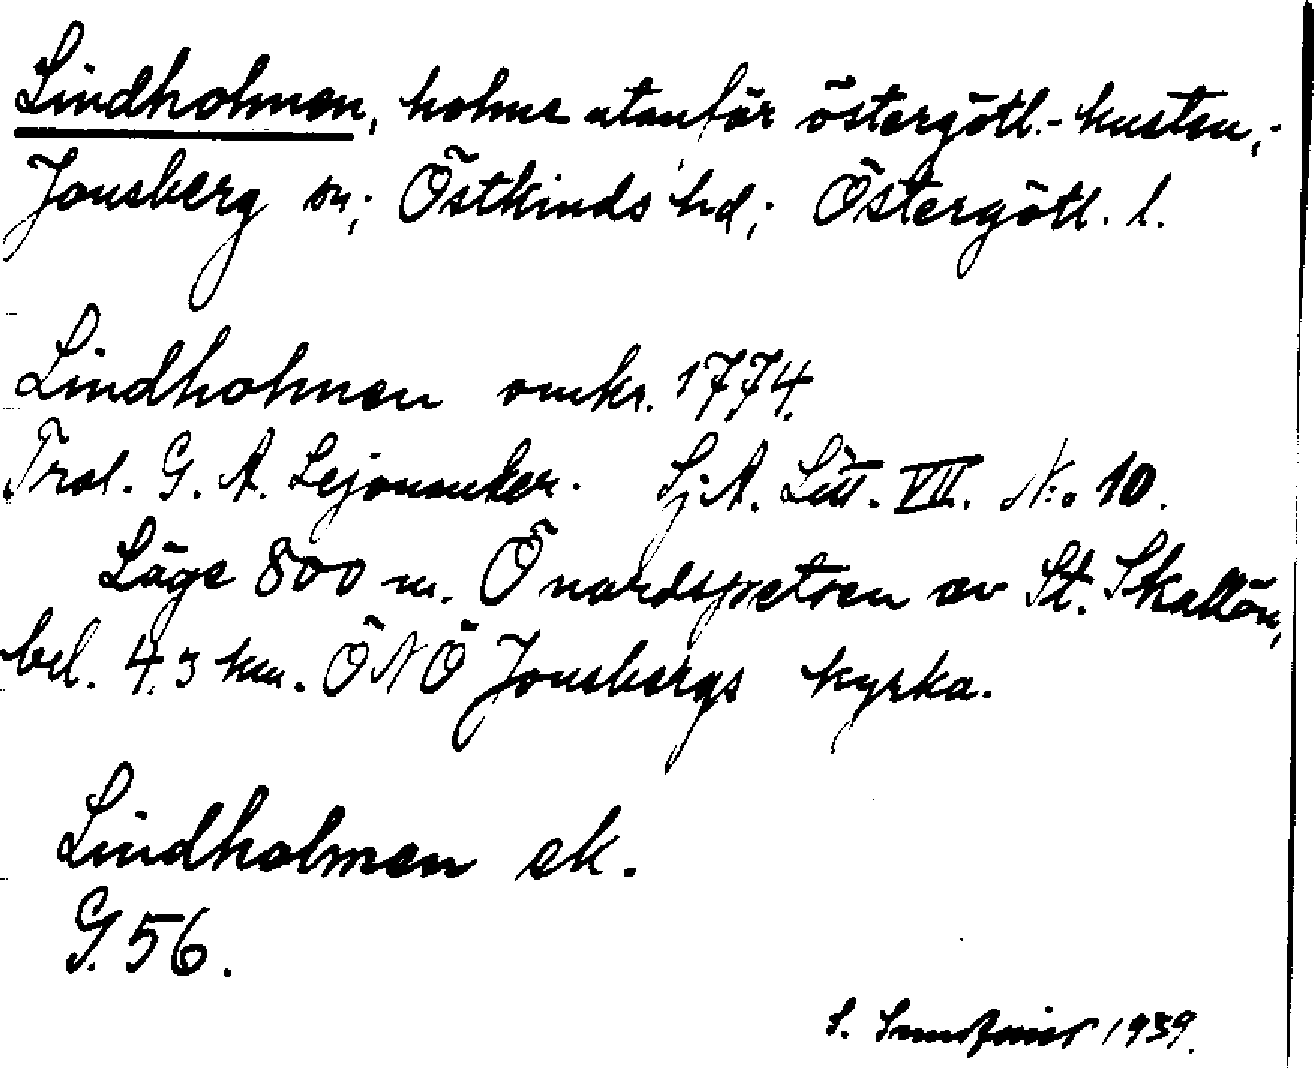 Lindholmen, holme utanför östergötl.-kusten,-
Jonsberg sn; Östkinds hd; Östergötl. l.
Lindholmen omkr. 1774.
Trol. G. A. Lejonanker. Sj.A. Litt. VII. N:o 10.
Läge 800 m. Ö nordspetsen av St. Skallön,
bel. 4.3 km. ÖNÖ Jonsbergs kyrka.
Lindholmen ek.
G. 56.
S. 1939.